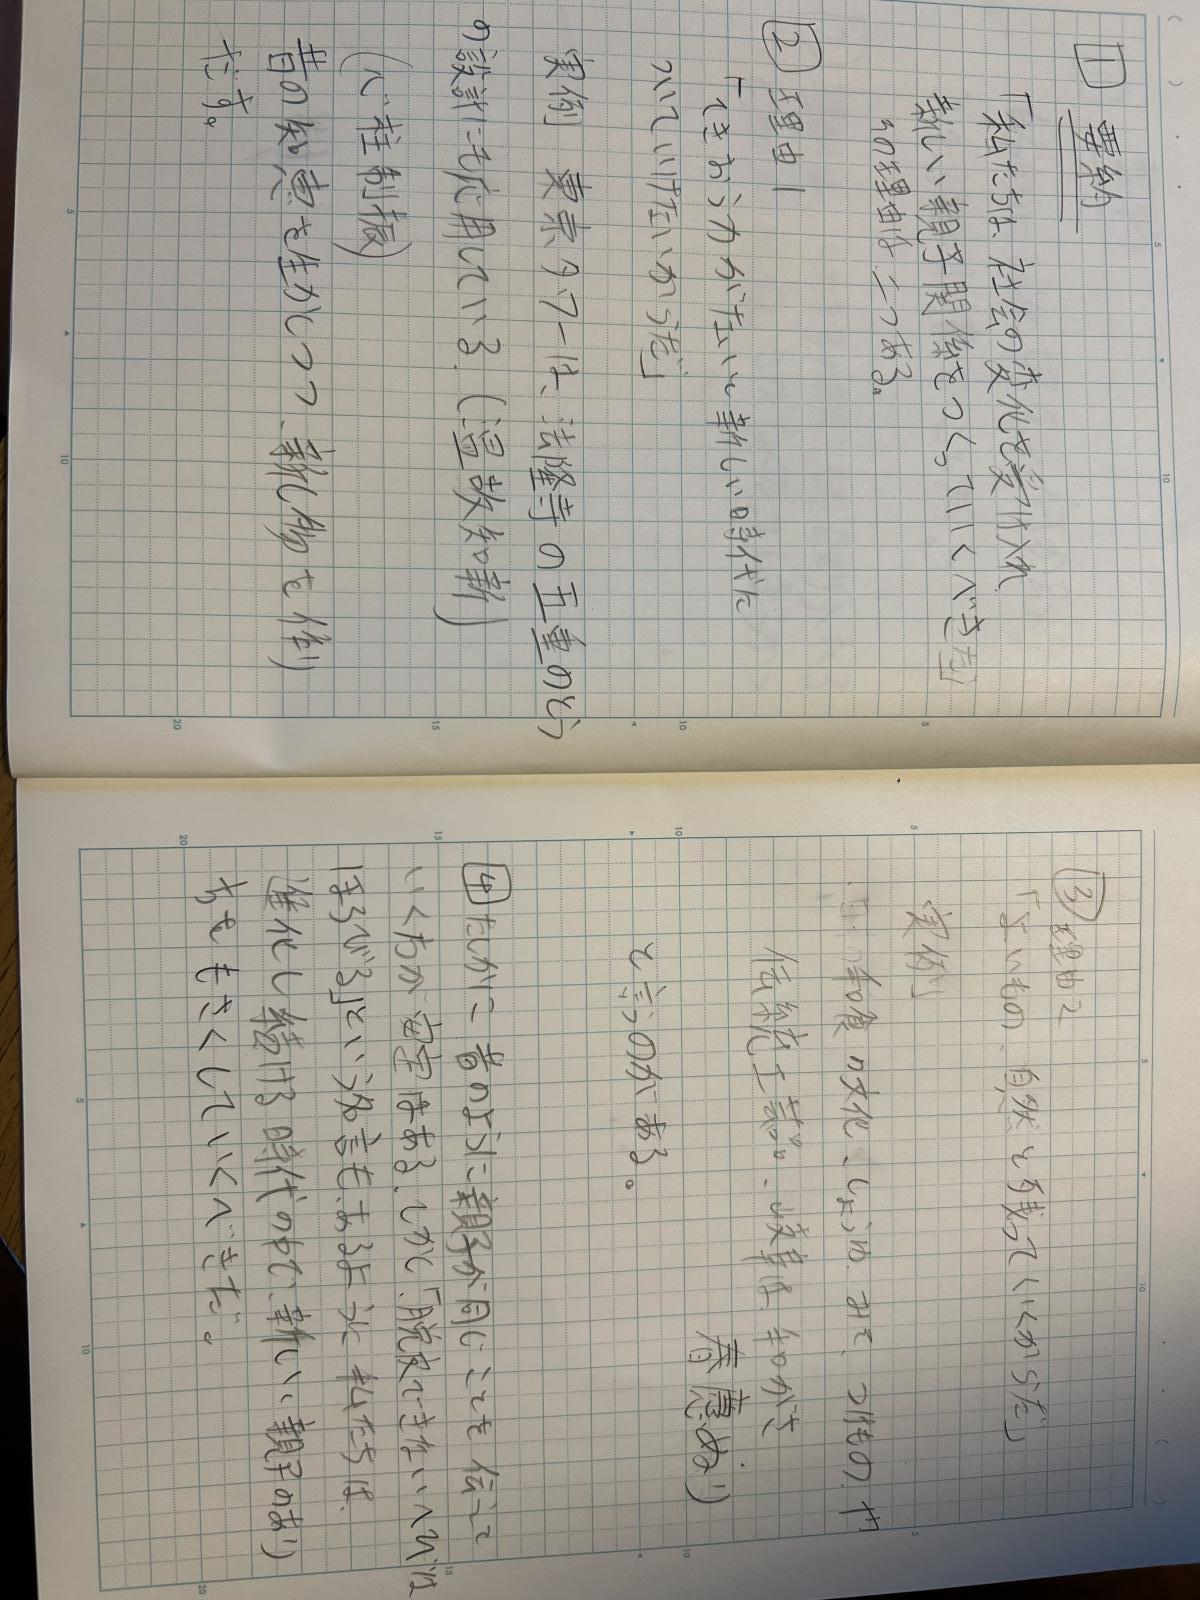 1 要約
「私たちは、社会の変化を受け入れ
新しい親子関係をつくっていくべきだ」
その理由は二つある。
2 理由1
ついていけないから だ」
実例 東京タワーは、法隆寺の五重のとう
の設計にも応用している。(温故知新)
(心柱制振)
昔の知恵を生かしつつ、新しい物を作り
だす。
3 理由2
「よいもの、自然と残っていくからだ」
実例
和食の文化、しょうゆ、みそ、つけもの、
伝統工芸品、岐阜は和がさ
春慶ぬり)
と言うのがある。
4 たしかに、昔のように親子が同じことを伝えて
いくちが安定はある。しかし「脱皮できないへびは
ほろびる」という名言もあるように、私たちは、
進化し続ける時代の中で、新しい親子のあり
方をもさくしていくべきだ。